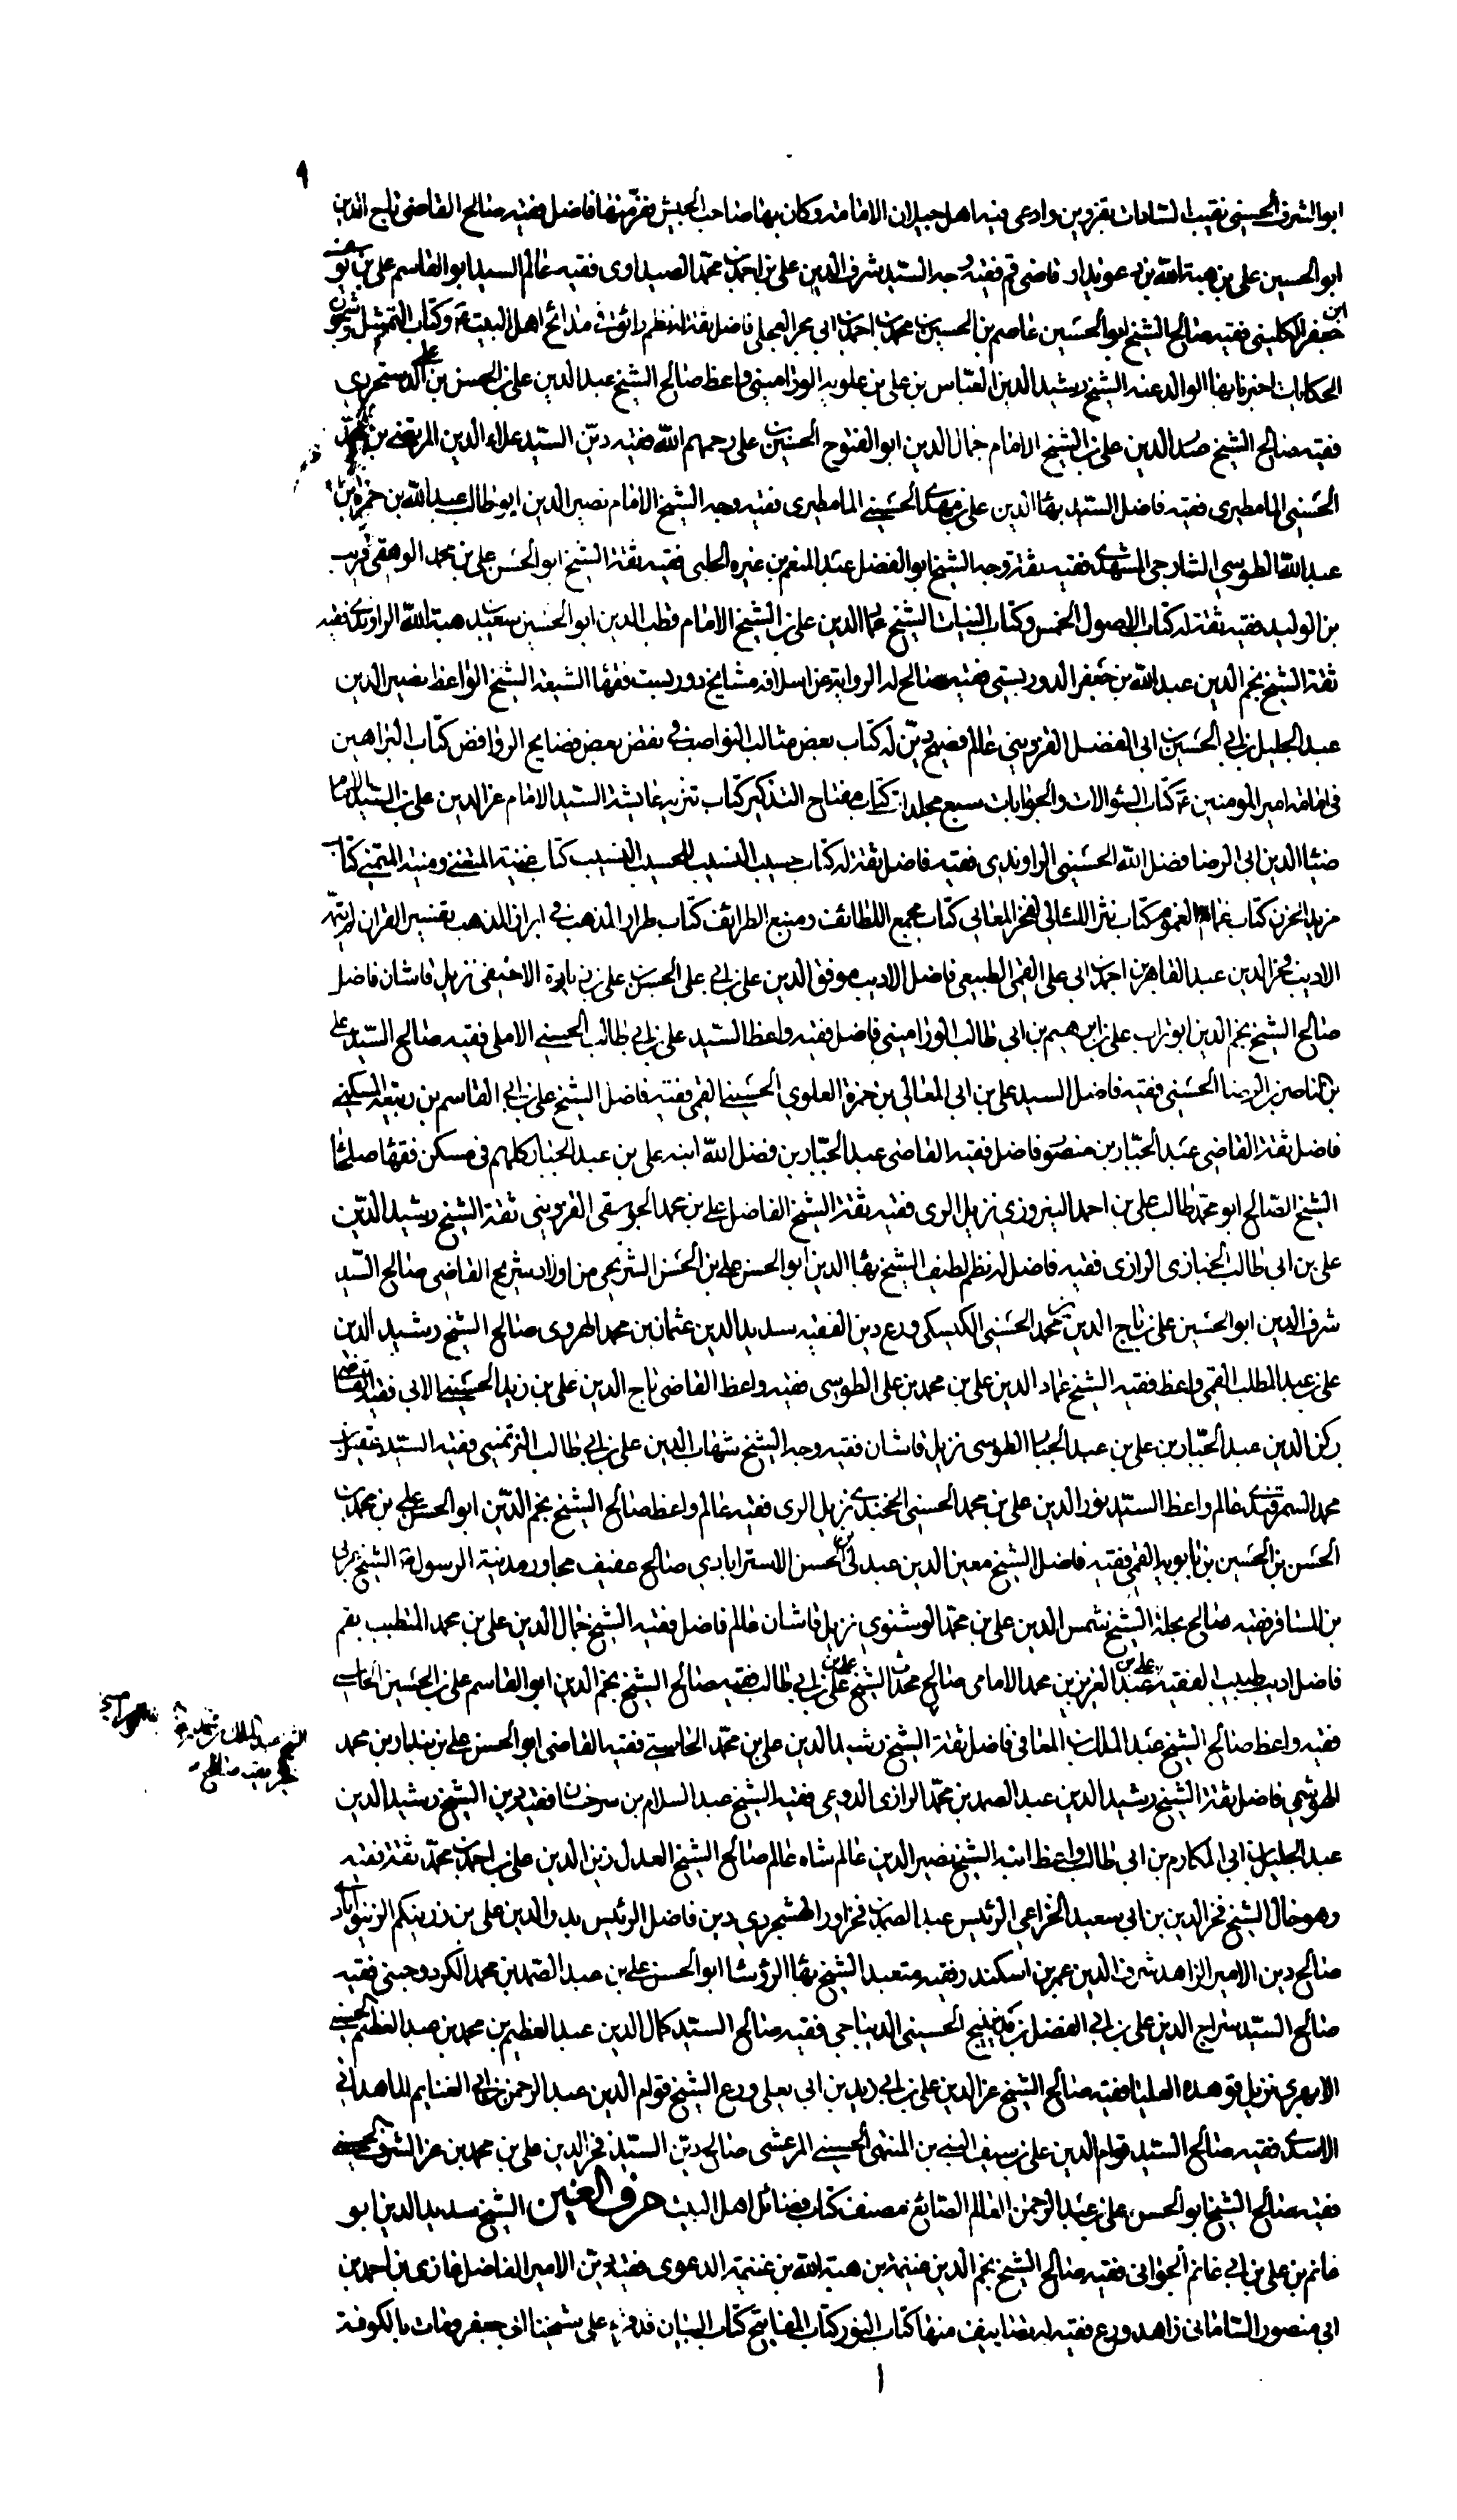 ٩
ابو الشرف الحسيني نقيب السادات بقزوين وادعى فيه اهل جيلان الامامة وكان بها صاحب الجيش ففر منها فاضل فقيه صالح القاضي تاج الدين
ابو الحسين علي بن هبة الله بن دعويدار قاضي قم فقيه وجه السيد شرف الدين علي بن احمد بن محمد الصيداوي فقيه عالم السيد ابو القاسم علي بن يوسف
ابن جعفر الكليني فقيه صالح الشيخ ابو الحسين عاصم بن الحسين بن محمد بن احمد بن ابي حجر العجلي فاضل ثقة له نظم رائق في مدائح اهل البيت ع وكتاب التمثيل وشجون
الحكايات اخبرنا بها الوالد عنه الشيخ رشيد الدين العباس بن علي بن علويه الوراميني واعظ صالح الشيخ عبد الدين علي بن الحسن بن علي الدستجردي
فقيه صالح الشيخ صدر الدين علي بن الشيخ الامام جمال الدين ابو الفتوح الحسين بن علي رحمهم الله فقيه دين السيد علاء الدين المرتضى بن محمد
الحسني المامطيري فقيه فاضل السيد بهاء الدين علي بن مهدي الحسيني المامطيري فقيه وجه الشيخ الامام نصير الدين ابو طالب عبد الله بن حمزة بن
عبد الله الطوسي الشارحي المشهدي فقيه ثقة وجه الشيخ ابو الفضل عبد المنعم بن غيره الحلبي فقيه ثقة الشيخ ابو الحسن علي بن محمد الوهقي قريب
بن الوليد فقيه ثقة له كتاب الاصول الخمس وكتاب النيات الشيخ عماد الدين علي بن الشيخ الامام قطب الدين ابو الحسين سعيد بن هبة الله الراوندي فقيه
ثقة الشيخ نجم الدين عبد الله بن جعفر الدوريستي فقيه صالح له الرواية عن اسلافه مشايخ دوريست فقهاء الشيعة الشيخ الواعظ نصير الدين
عبد الجليل بن ابي الحسين بن ابي الفضل القزويني عالم فصيح دين له كتاب بعض مثالب النواصب في نقض بعض فضايح الروافض كتاب البراهين
في امامة امير المومنين ع كتاب السؤالات والجوابات سبع مجلدات كتاب مفتاح التذكير كتاب تنزيه عايشة السيد الامام عز الدين علي بن السيد الامام
ضياء الدين ابي الرضا فضل الله الحسيني الراوندي فقيه فاضل ثقة له كتاب حسيب النسيب للحسيب النسيب كتاب غنية المتغني ومنية المتمني كتاب
مزيد الحزن كتاب غمام الغموم كتاب نثر اللئالي لفخر المعالي كتاب مجمع اللطائف ومنبع الطرائف كتاب طراز المذهب في ابراز المذهب تفسير القران لم يتمه
الاديب فخر الدين عبد القاهر بن احمد بن ابي علي القمي الطبيعي فاضل الاديب موفق الدين علي بن ابي علي الحسن بن علي بن بابرة الاخيفي نزيل قاشان فاضل
صالح الشيخ نجم الدين ابو تراب علي بن ابرهيم بن ابي طالب الوراميني فاضل فقيه واعظ السيد علي بن ابي طالب الحسيني الاملي فقيه صالح السيد علي
بن الناصر بن الرضا الحسيني فقيه فاضل السيد علي بن ابي المعالي بن حمزة العلوي الحسيني القمي فقيه فاضل الشيخ علي بن ابي القاسم بن ربيعة المسكني
فاضل ثقة القاضي عبد الجبار بن منصور فاضل فقيه القاضي عبد الجبار بن فضل الله ابنه علي بن عبد الجبار كلهم في مسكن فقهاء صلحاء
الشيخ الصالح ابو محمد طالب علي بن احمد البزوري نزيل الري فقيه ثقة الشيخ الفاضل علي بن محمد الجوسقي القزويني ثقة الشيخ رشيد الدين
علي بن ابي طالب الخبازي الرازي فقيه فاضل له نظم لطيف الشيخ بهاء الدين ابو الحسن علي بن الحسن الشريحي من اولاد شريح القاضي صالح السيد
شرف الدين ابو الحسين علي بن تاج الدين بن محمد الحسني الكيسكي ورع دين الفقيه سديد الدين عثمان بن محمد الهروي صالح الشيخ رشيد الدين
علي بن عبد المطلب القمي واعظ فقيه الشيخ عماد الدين علي بن محمد بن علي الطوسي فقيه واعظ القاضي تاج الدين علي بن زيد الحسيني الابي فقيه القاضي
ركن الدين عبد الجبار بن علي بن عبد الجبار الطوسي نزيل قاشان فقيه وجه الشيخ شهاب الدين علي بن ابي طالب النرتميي فقيه السيد عقيل بن
محمد السمرقندي عالم واعظ السيد نور الدين علي بن محمد الحسيني الخجندي نزيل الري فقيه عالم واعظ صالح الشيخ نجم الدين ابو الحسن علي بن محمد بن
الحسن بن الحسين بن بابويه القمي فقيه فاضل الشيخ معين الدين عبد لي بن الحسن الاسترابادي صالح عفيف مجاور مدينة الرسول ص الشيخ عربي
بن المسافر فقيه صالح بحلة الشيخ شمس الدين علي بن محمد الوشنوي نزيل قاشان عالم فاضل فقيه الشيخ جمال الدين علي بن محمد المتطبب بقم
فاضل اديب طبيب الفقيه علي بن عبد العزيز بن محمد الامامي صالح محدث الشيخ علي بن ابي طالب فقيه صالح الشيخ نجم الدين ابو القاسم علي بن الحسين الجاسبي
فقيه واعظ صالح الشيخ عبد الملك بن المعافى فاضل ثقة الشيخ رشيد الدين علي بن محمد الجاسبي فقيه القاضي ابو الحسن علي بن بندار بن محمد
الهوشمي فاضل ثقة الشيخ رشيد الدين عبد الصمد بن محمد الرازي الدوعي فقيه الشيخ عبد السلام بن سرخسان فقيه دين الشيخ رشيد الدين
عبد الجليل بن ابي المكارم بن ابي طالب واعظ ابنه الشيخ نصير الدين عالم شاه عالم صالح الشيخ العدل زين الدين علي بن احمد بن محمد ثقة فقيه
وهو خال الشيخ فخر الدين بن ابي سعيد الخزاعي الرئيس عبد الصمد بن فخراور الهشجردي دين فاضل الرئيس بدر الدين علي بن زرينكم الزينوابادي
صالح دين الامير الزاهد شرف الدين عمر بن اسكندر فقيه متعبد الشيخ بهاء الرؤسا ابو الحسن علي بن عبد الصمد بن محمد الكردوجيني فقيه
صالح السيد سراج الدين علي بن ابي الفضل بن مدينيج الحسيني الديباجي فقيه صالح السيد كمال الدين عبد العظيم بن محمد بن عبد العظيم الحسيني
الابهري نزيل قوهده العليا فقيه صالح الشيخ عز الدين علي بن ابي زيد بن ابي يعلى ورع الشيخ قوام الدين عبد الرحمن بن ابي الغنايم الماهداني
الاسدي فقيه صالح السيد قوام الدين علي بن سيف النبي بن المنتهى الحسيني المرعشي صالح دين السيد فخر الدين علي بن محمد بن عز الشرف الحسيني
فقيه صالح الشيخ ابو الحسن علي بن عبد الرحمن العالم الصائغ مصنف كتاب فضائل اهل البيت حرف الغين الشيخ سديد الدين ابو
غانم بن علي بن ابي غانم الجواني فقيه صالح الشيخ نجم الدين غنيمة بن هبة الله بن غنيمة الدعوي فقيه دين الامير الفاضل غازي بن احمد بن
ابي منصور الساماني زاهد ورع فقيه له تصانيف منها كتاب النور كتاب المفاتيح كتاب البيان قد قرء على شيخنا ابي جعفر ومات بالكوفة
الشيخ عبد الملك بن محمد
فقيه صالح